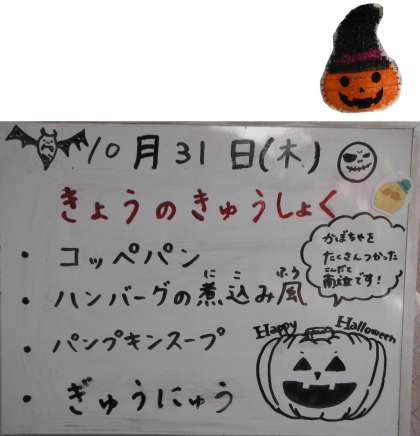 10月31日(木)
きょうのきゅうしょく
・コッペパン
・ハンバーグの煮込み風
にこ
ふう
・パンプキンスープ
・ぎゅうにゅう
かぼちゃを
たくさんつかった
こんだて
です!
Happy Halloween